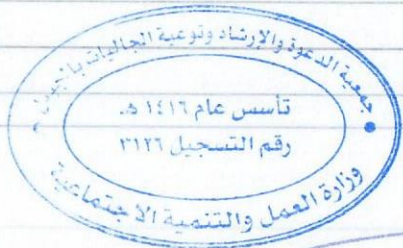 جمعية الدعوة والإرشاد وتوعية الجاليات بالجبيل
تأسس عام ١٤١٦ هـ
رقم التسجيل ٣١٢٦
وزارة العمل والتنمية الاجتماعية